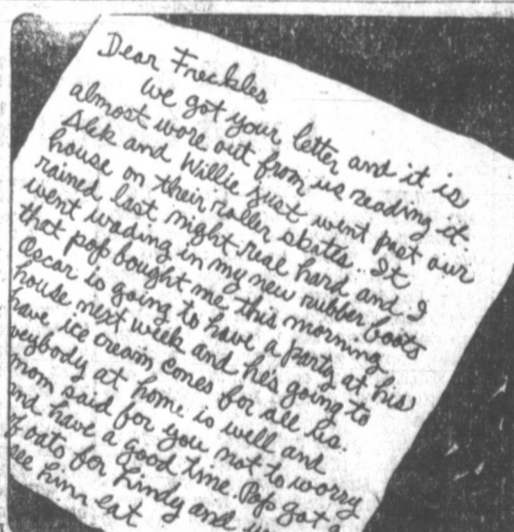 Dear Freckles
We got your letter and it is
almost wore out from us reading it.
Alek and Willie just went past our
house on their roller skates.. It
rained last night real hard and I
went wading in my new rubber boots
that pop bought me this morning
Oscar is going to have a party at his
house next week and hes going to
have ice cream cones for all us.
veybody at home is well and
mom said for you not to worry
and have a good time. Pop got
oats for Lindy and
see him eat